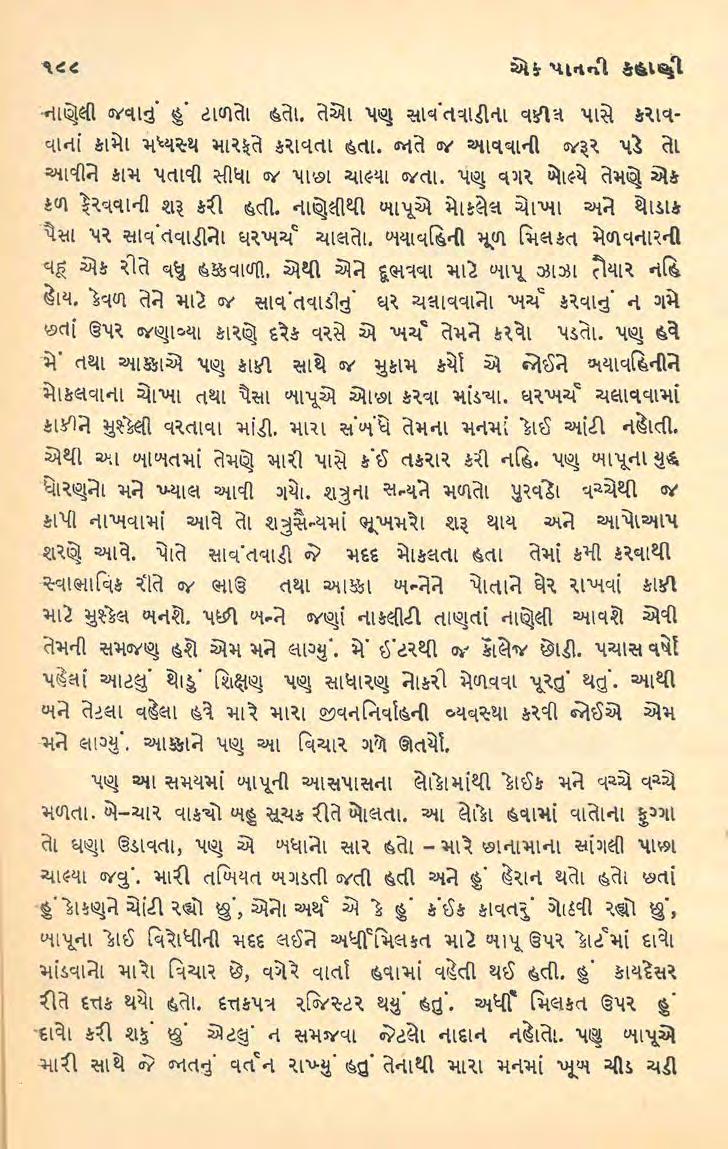 ૧૮૮ એક પાનની કહાણી
નાણેલી જવાનું હું ટાળતો હતો. તેઓ પણ સાવંતવાડીના વકીલ પાસે કરાવ-
વાનાં કામો મધ્યસ્થ મારફતે કરાવતા હતા. જાતે જ આવવાની જરૂર પડે તો
આવીને કામ પતાવી સીધા જ પાછા ચાલ્યા જતા. પણ વગર બોલ્યે તેમણે એક
કળ ફેરવવાની શરૂ કરી હતી. નાણેલીથી બાપૂએ મોકલેલ ચોખા અને થોડાક
પૈસા પર સાવંતવાડીનો ઘરખર્ચ ચાલતો. બયાવહિની મૂળ મિલકત મેળવનારની
વહૂ એક રીતે વધુ હક્કવાળી. એથી એને દૂભવવા માટે બાપૂ ઝાઝા તૈયાર નહિ
હોય. કેવળ તેને માટે જ સાવંતવાડીનું ઘર ચલાવવાનો ખર્ચ કરવાનું ન ગમે
છતાં ઉપર જણાવ્યા કારણે દરેક વરસે એ ખર્ચ તેમને કરવો પડતો. પણ હવે
મેં તથા આક્કાએ પણ કાકી સાથે જ મુકામ કર્યો એ જોઈને બયાવહિનીને
મોકલવાના ચોખા તથા પૈસા બાપૂએ ઓછા કરવા માંડ્યા. ઘરખર્ચ ચલાવવામાં
કાકીને મુશ્કેલી વરતાવા માંડી. મારા સંબંધે તેમના મનમાં કોઈ આંટી નહોતી.
એથી આ બાબતમાં તેમણે મારી પાસે કંઈ તકરાર કરી નહિ. પણ બાપૂના યુદ્ધ
ધોરણનો મને ખ્યાલ આવી ગયો. શત્રુના સૈન્યને મળતો પુરવઠો વચ્ચેથી જ
કાપી નાખવામાં આવે તો શત્રુસૈન્યમાં ભૂખમરો શરૂ થાય અને આપોઆપ
શરણે આવે. પોતે સાવંતવાડી જે મદદ મોકલતા હતા તેમાં કમી કરવાથી
સ્વાભાવિક રીતે જ ભાઉ તથા આક્કા બન્નેને પોતાને ઘેર રાખવાં કાકી
માટે મુશ્કેલ બનશે. પછી બન્ને જણાં નાકલીટી તાણતાં નાણેલી આવશે એવી
તેમની સમજણ હશે એમ મને લાગ્યું. મેં ઈંટરથી જ કૉલેજ છોડી. પચાસ વર્ષો
પહેલાં આટલું થોડું શિક્ષણ પણ સાધારણ નોકરી મેળવવા પૂરતું થતું. આથી
બને તેટલા વહેલા હવે મારે મારા જીવનનિર્વાહની વ્યવસ્થા કરવી જોઈએ એમ
મને લાગ્યું. આક્કાને પણ આ વિચાર ગળે ઊતર્યો.
પણ આ સમયમાં બાપૂની આસપાસના લોકોમાંથી કોઈક મને વચ્ચે વચ્ચે
મળતા. બે–ચાર વાક્યો બહુ સૂચક રીતે બોલતા. આ લોકો હવામાં વાતોના ફુગ્ગા
તો ઘણા ઉડાવતા, પણ એ બધાનો સાર હતો – મારે છાનામાના સાંગલી પાછા
ચાલ્યા જવું. મારી તબિયત બગડતી જતી હતી અને હું હેરાન થતો હતો છતાં
હું કોકણને ચોંટી રહ્યો છું, એનો અર્થ એ કે હું કંઈક કાવતરું ગોઠવી રહ્યો છું,
બાપૂના કોઈ વિરોધીની મદદ લઈને અર્ધીમિલકત માટે બાપૂ ઉપર કોર્ટમાં દાવો
માંડવાનો મારો વિચાર છે, વગેરે વાર્તા હવામાં વહેતી થઈ હતી. હું કાયદેસર
રીતે દત્તક થયો હતો. દત્તકપત્ર રજિસ્ટર થયું હતું. અર્ધી મિલકત ઉપર હું
દાવો કરી શકું છું એટલું ન સમજવા જેટલો નાદાન નહોતો. પણ બાપૂએ
મારી સાથે જે જાતનું વર્તન રાખ્યું હતું તેનાથી મારા મનમાં ખૂબ ચીડ ચડી